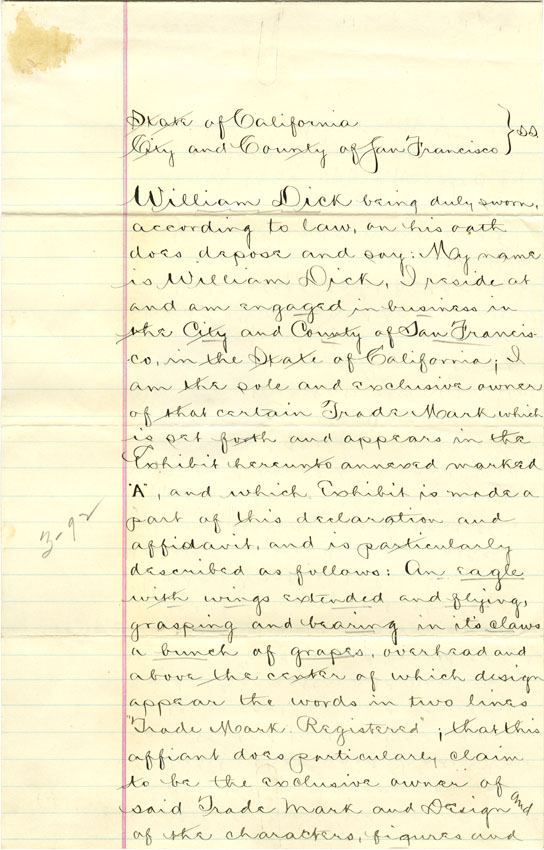 State of California } SS.
City and County of San Francisco
William Dick being duly sworn,
according to law, on his oath
does depose and say: My name
is William Dick, I reside at
and am engaged in business in
the City and County of San Francis-
co, in the State of California; I
am the sole and exclusive owner
of that certain Trade Mark which
is set forth and appears in the
Exhibit hereunto annexed marked
"A", and which Exhibit is made a
part of this declaration and
affidavit, and is particularly
described as follows: An eagle
with wings extended and flying,
grasping and bearing in it's claws
a bunch of grapes, overhead and
above the center of which design
appear the words in two lines
"Trade Mark Registered"; that this
affiant does particularly claim
to be the exclusive owner of
said Trade Mark and Design and
of the characters, figures and
3-92